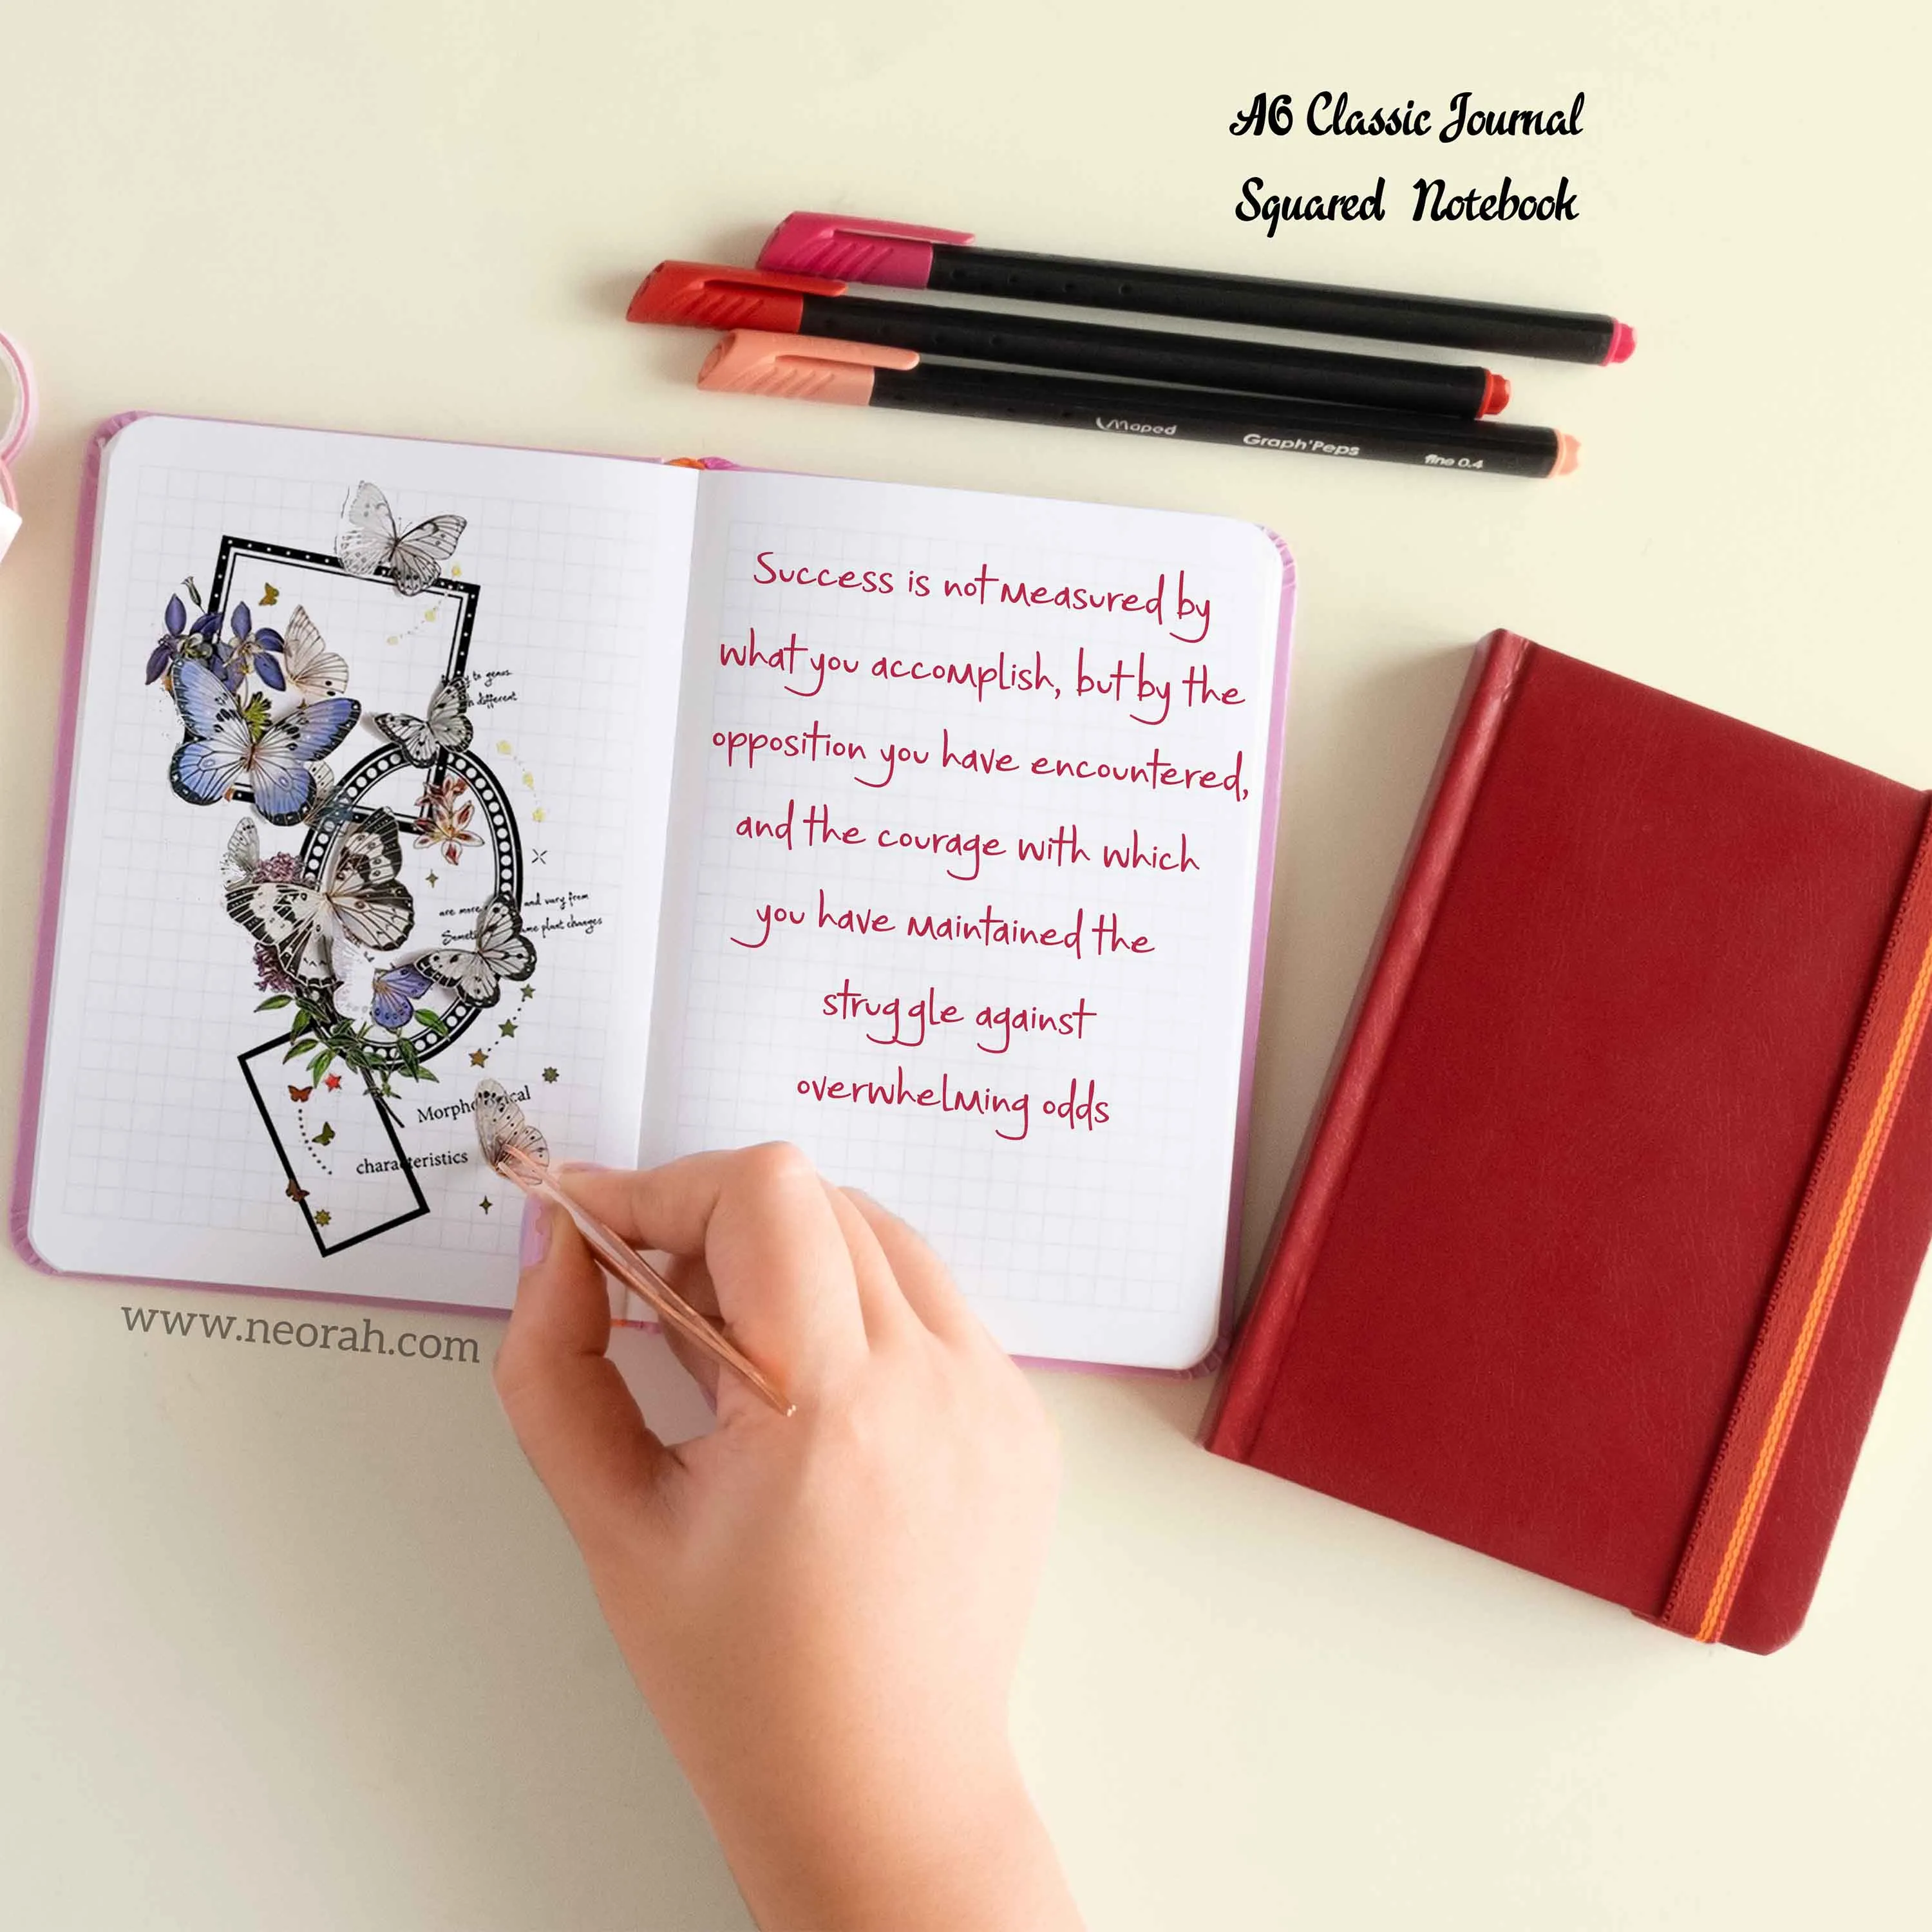 A6 Classic Journal
Squared Notebook
Maped Graph'Peps fine 0.4
to genus.
different
are more and vary from
plant changes
Morphological
characteristics
Success is not measured by
what you accomplish, but by the
opposition you have encountered,
and the courage with which
you have maintained the
struggle against
overwhelming odds
www.neorah.com